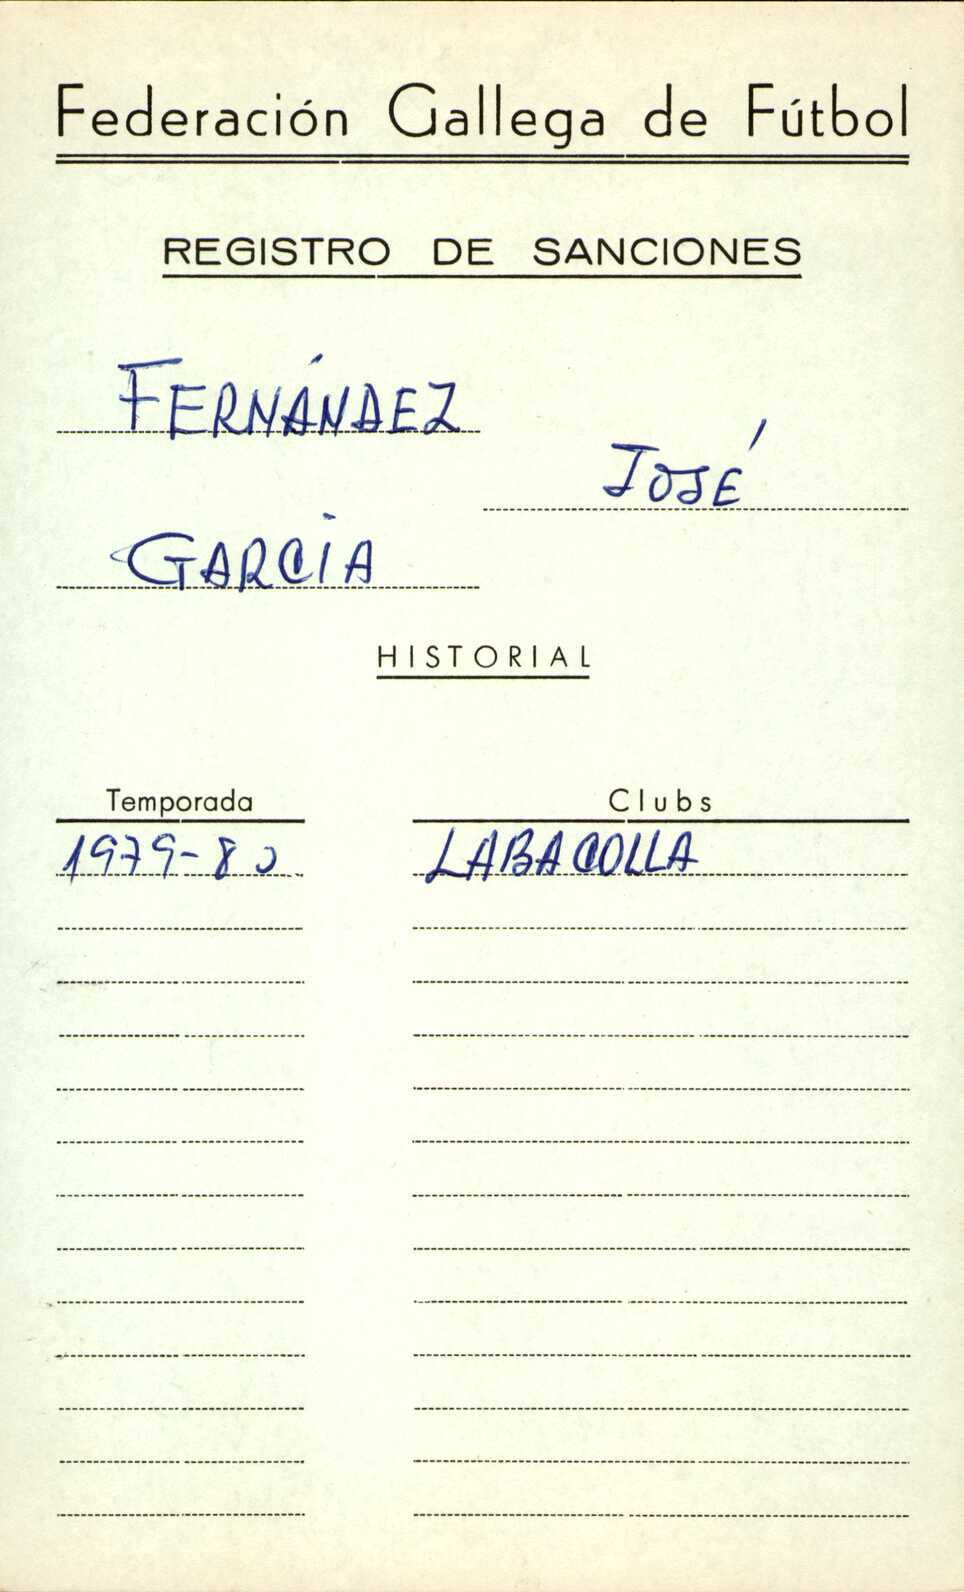 Federación Gallega de Fútbol
REGISTRO DE SANCIONES
FERNÁNDEZ
JOSÉ
GARCÍA
HISTORIAL
Temporada Clubs
1979-80 LABACOLLA